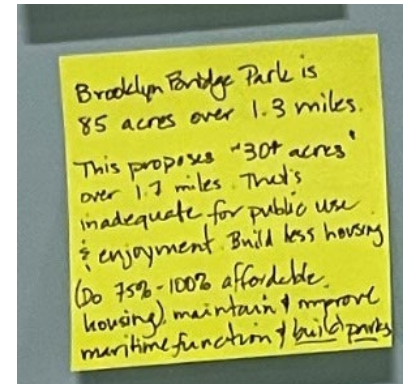 Brooklyn Bridge Park is
85 acres over 1.3 miles.
This proposes "30+ acres"
over 1.7 miles. That's
inadequate for public use
& enjoyment. Build less housing
(Do 75%-100% affordable
housing), maintain & improve
maritime function & build parks